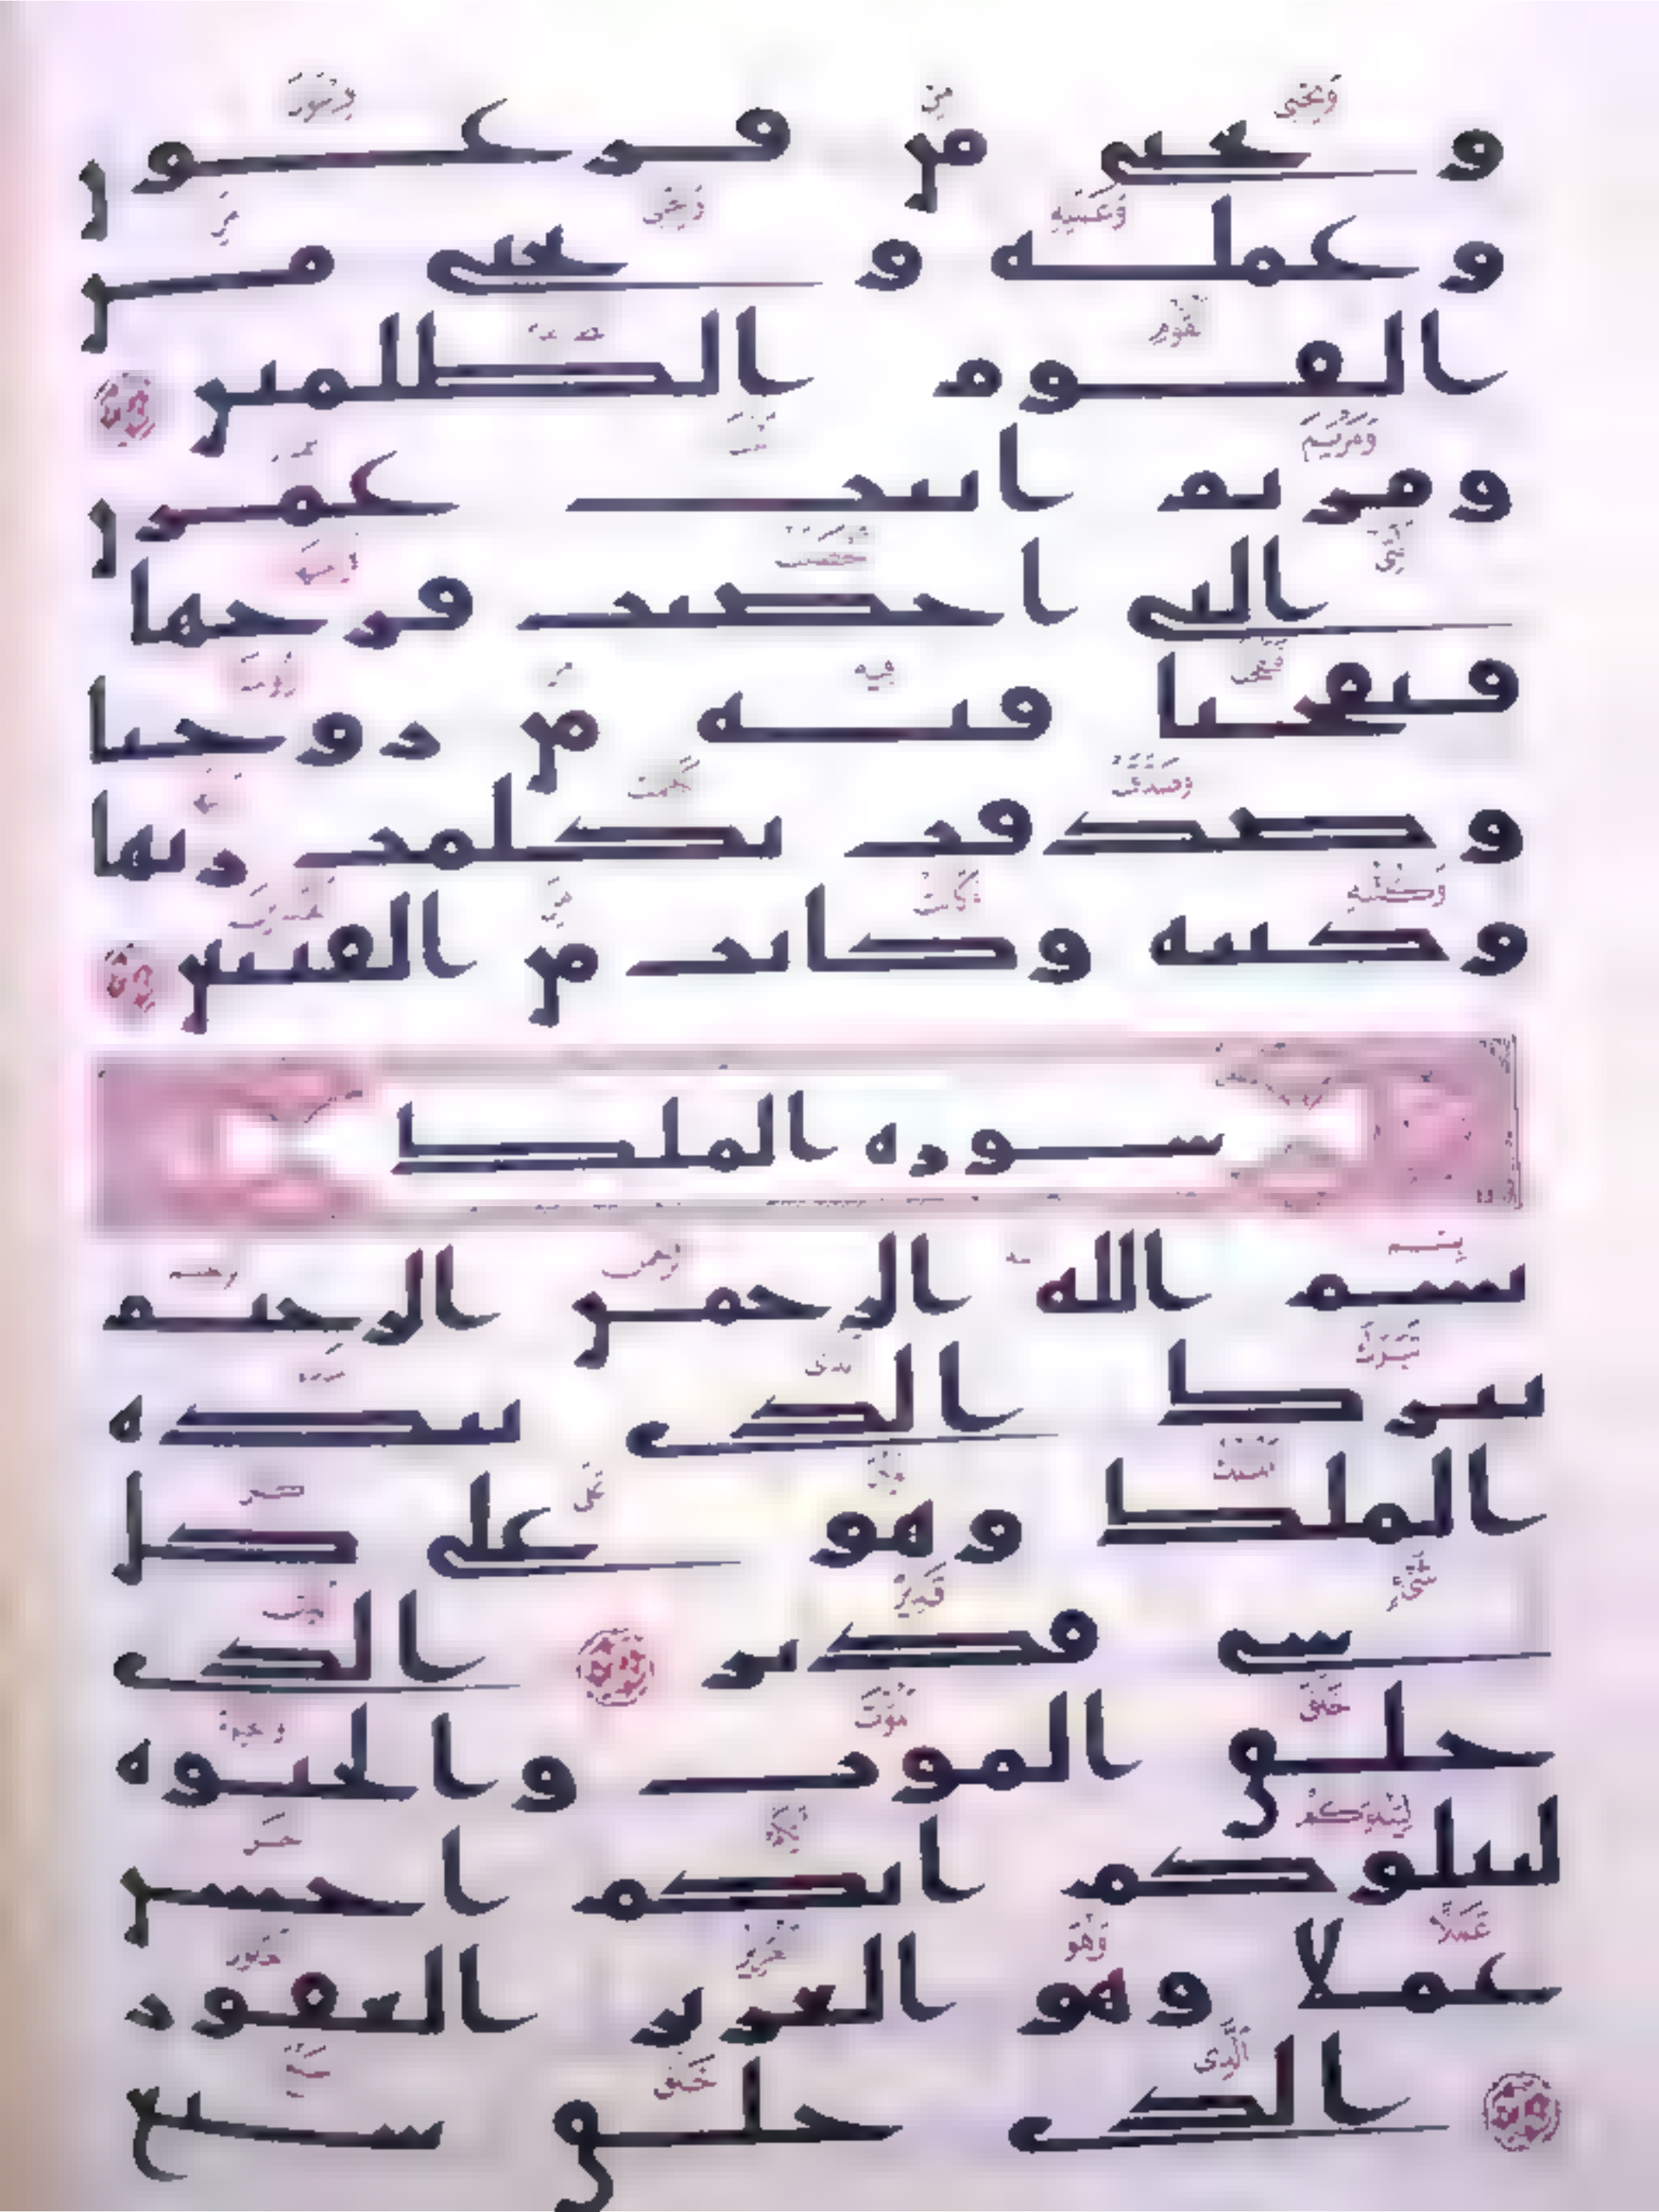 ونجنى من فرعون
وعمله ونجنى من
القوم الظلمين
ومريم ابنت عمرن
التى احصنت فرجها
فنفخنا فيه من روحنا
وصدقت بكلمت ربها
وكتبه وكانت من القنتين
سورة الملك
بسم الله الرحمن الرحيم
تبرك الذى بيده
الملك وهو على كل
شى قدير الذى
خلق الموت والحيوة
ليبلوكم ايكم احسن
عملا وهو العزيز الغفور
الذى خلق سبع